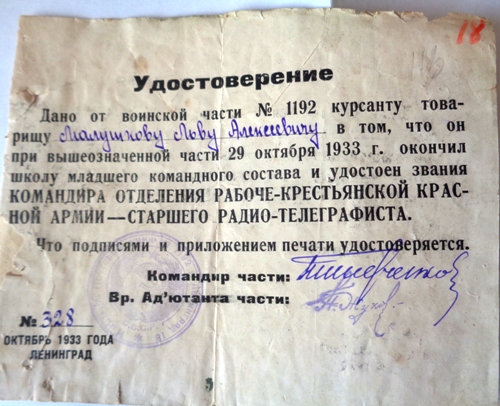 18
Удостоверение
Дано от воинской части № 1192 курсанту това-
рищу Малушкову Льву Алексеевичу в том, что он
при вышеозначенной части 29 октября 1933 г. окончил
школу младшего командного состава и удостоен звания
КОМАНДИРА ОТДЕЛЕНИЯ РАБОЧЕ-КРЕСТЬЯНСКОЙ КРАС-
НОЙ АРМИИ—СТАРШЕГО РАДИО-ТЕЛЕГРАФИСТА.
Что подписями и приложением печати удостоверяется.
Командир части:
Вр. Ад'ютанта части:
№ 328
ОКТЯБРЬ 1933 ГОДА
ЛЕНИНГРАД